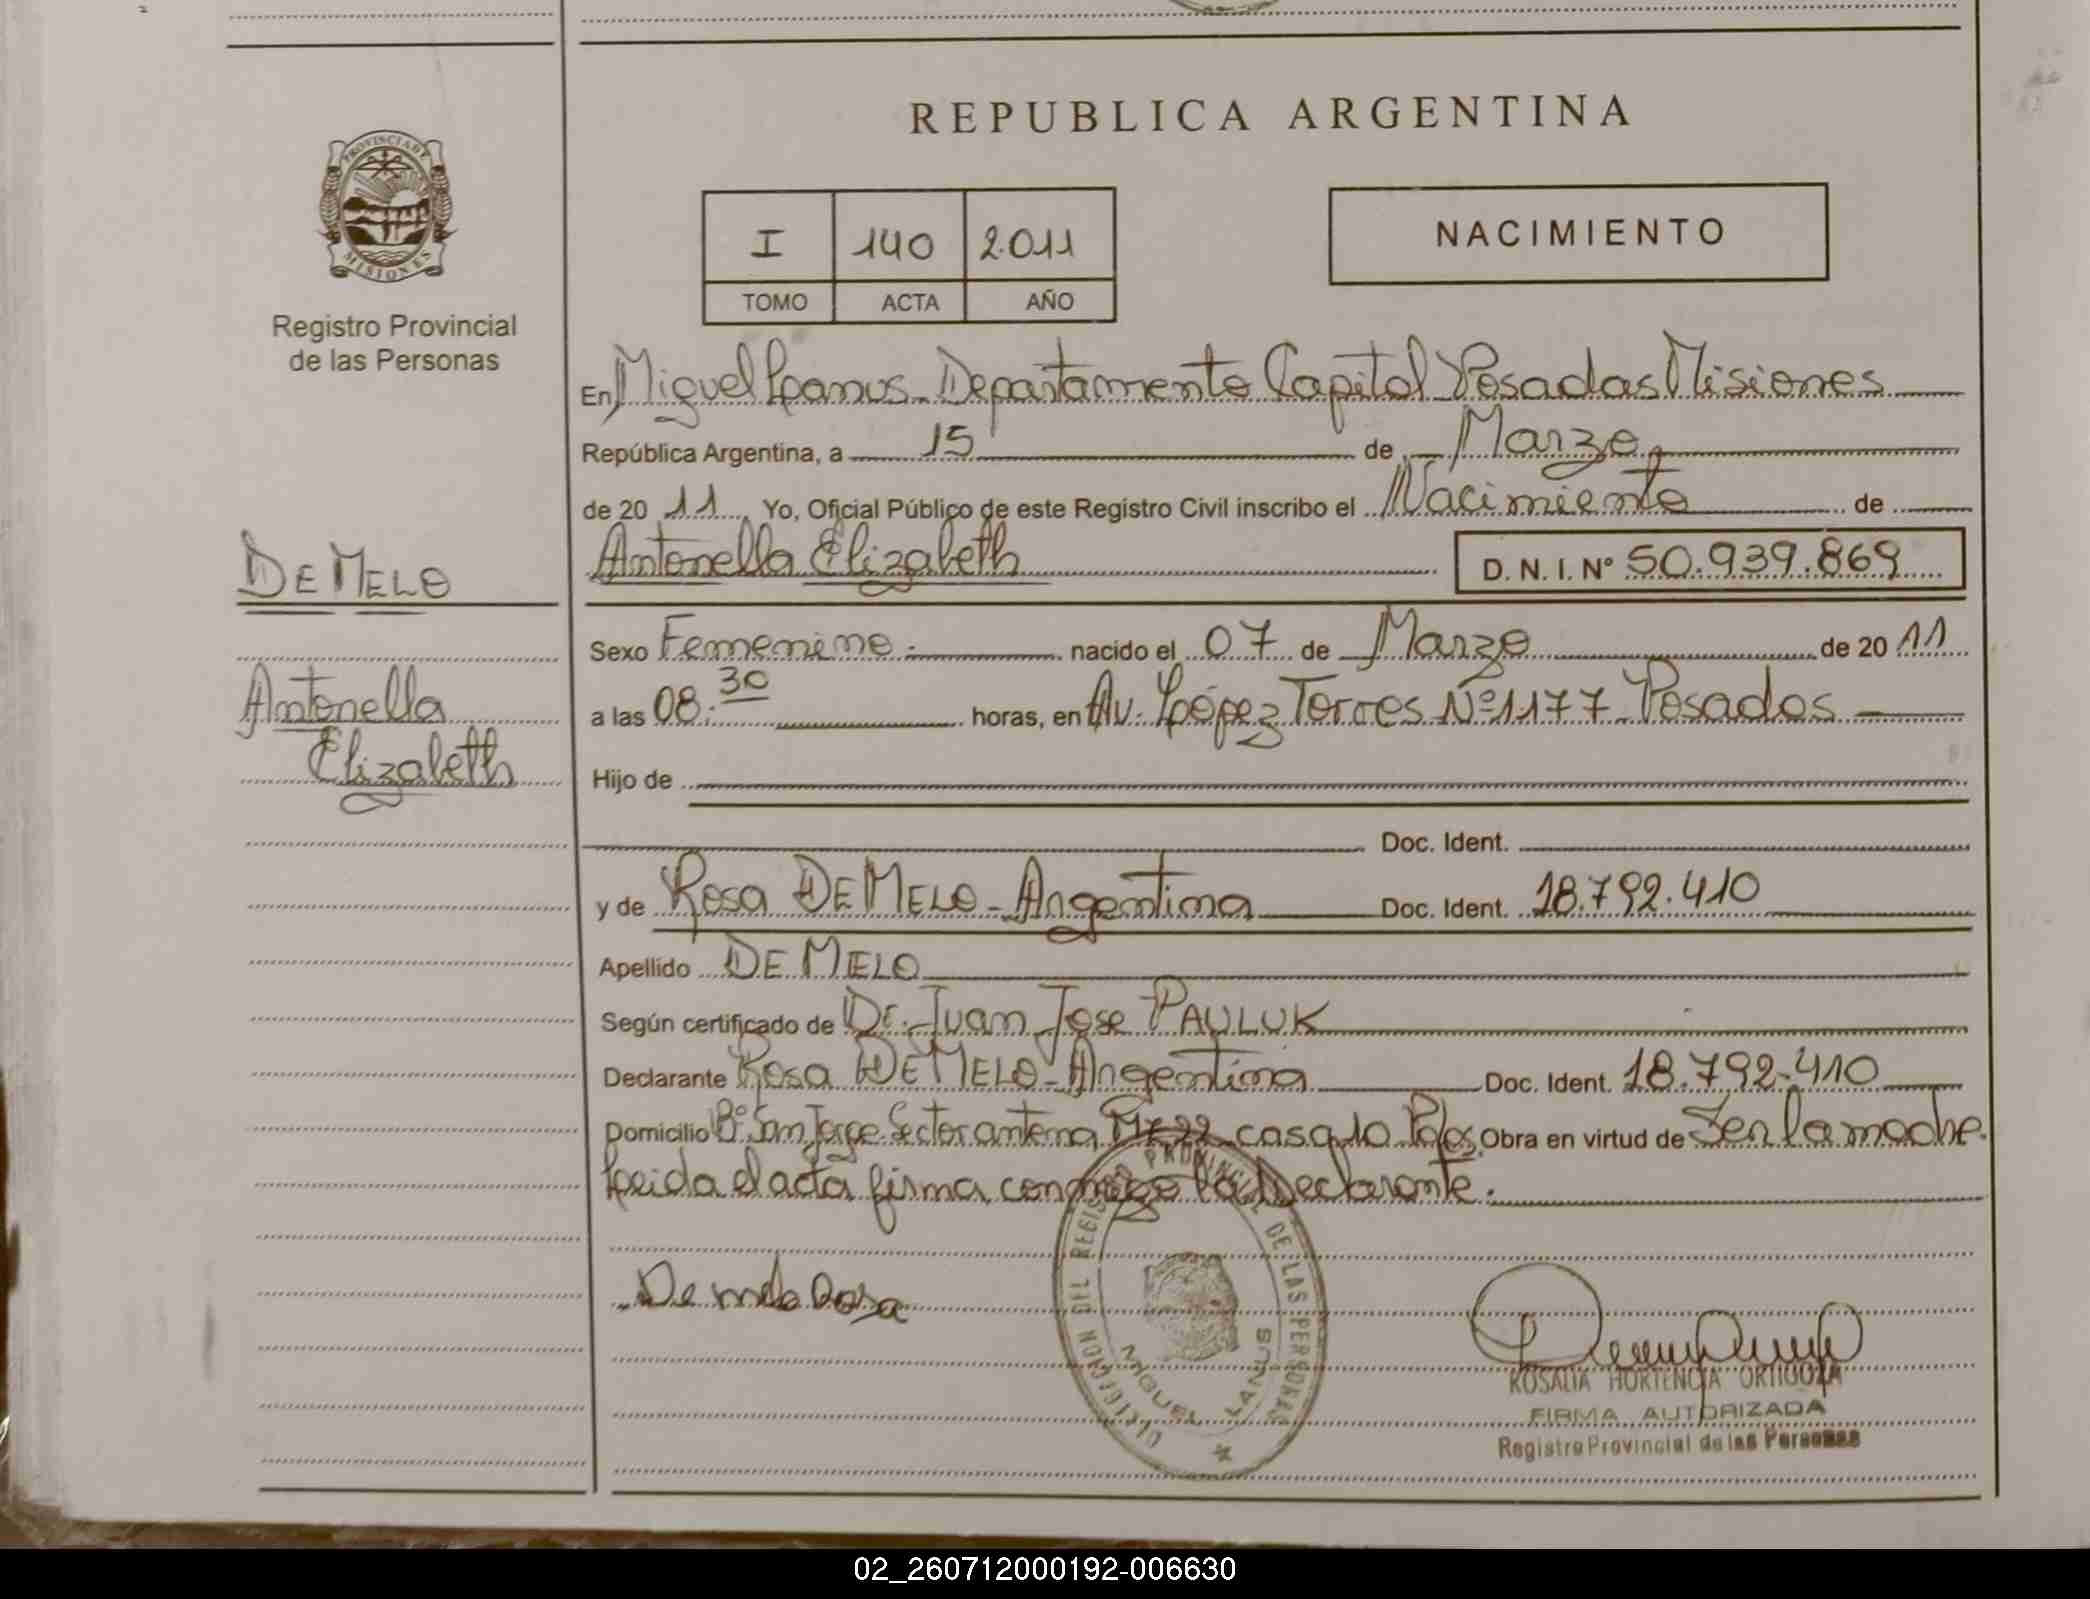 REPUBLICA ARGENTINA
PROVINCIA DE
MISIONES
Registro Provincial
de las Personas
I 140 2.011
TOMO ACTA AÑO
NACIMIENTO
En Miguel Lanus - Departamento Capital Posadas Misiones
República Argentina, a 15 de Marzo
de 20 11 Yo, Oficial Público de este Registro Civil inscribo el Nacimiento de
Antonella Elizabeth D. N. I. Nº 50.939.869
DE MELO
Antonella
Elizabeth
Sexo Femenino.- nacido el 07 de Marzo de 20 11
a las 08:30 horas, en Av. López Torres Nº 1177 - Posadas
Hijo de
Doc. Ident.
y de Rosa DE MELO - Argentina Doc. Ident. 18.792.410
Apellido DE MELO
Según certificado de Dr. Juan Jose PAULUK
Declarante Rosa DE MELO - Argentina Doc. Ident. 18.792.410
Domicilio Bº San Jorge Sector antena, Mz 22 casa 10 Obra en virtud de Ser la madre.
Leida el acta firma conmigo la Declarante.
De melo Rosa
DIRECCION DEL REGISTRO PROVINCIAL DE LAS PERSONAS
MIGUEL LANUS
ROSALIA HORTENCIA ORTIGOZA
FIRMA AUTORIZADA
Registro Provincial de las Personas
02_260712000192-006630